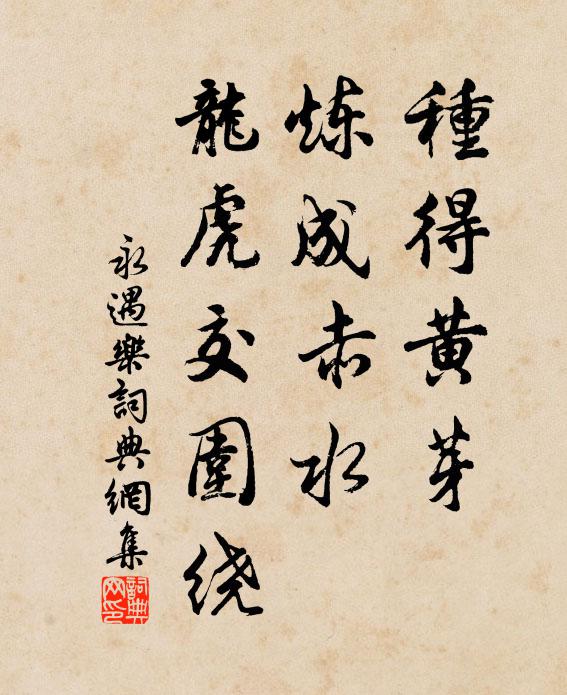 種得黄芽
炼成赤水
龍虎交圍绕
永遇樂詞典網集
詞典網印